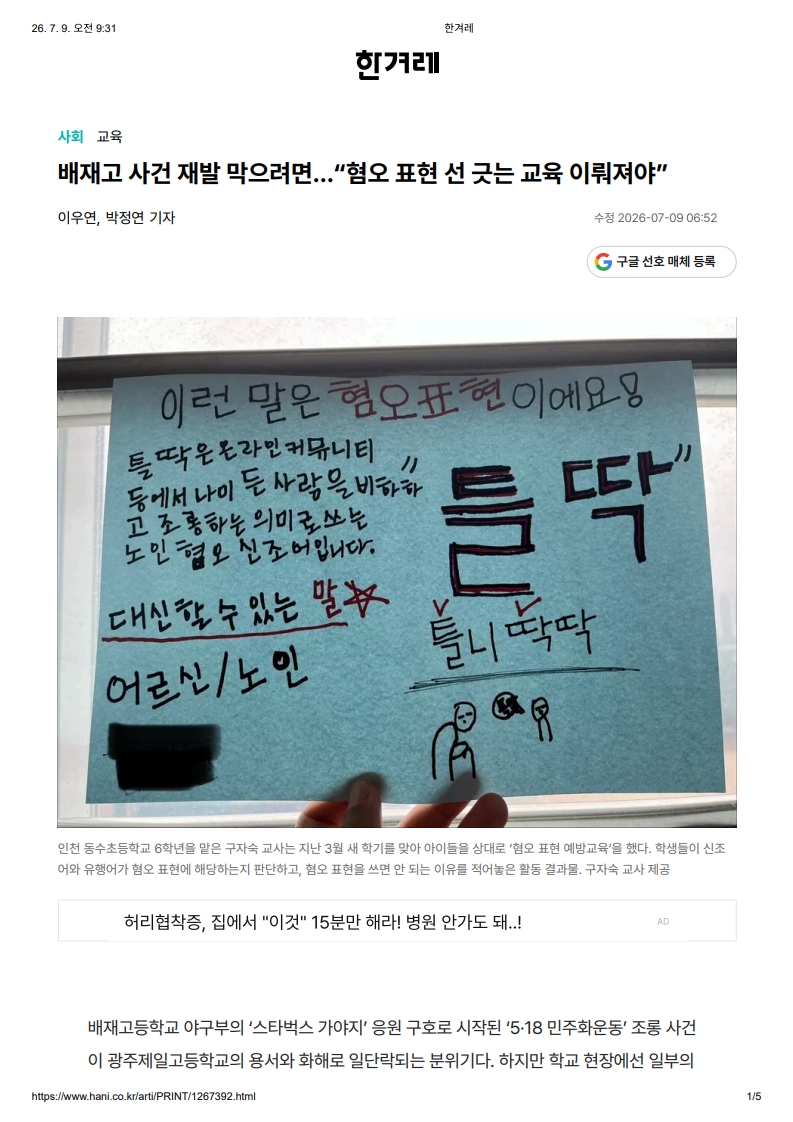 26. 7. 9. 오전 9:31
한겨레
한겨레
사회 교육
배재고 사건 재발 막으려면…“혐오 표현 선 긋는 교육 이뤄져야”
이우연, 박정연 기자
수정 2026-07-09 06:52
구글 선호 매체 등록
이런 말은 혐오표현이에요!
틀딱은 온라인 커뮤니티
등에서 나이 든 사람을 비하하
고 조롱하는 의미로 쓰는
노인 혐오 신조어입니다.
대신할 수 있는 말
어르신/노인
"틀딱"
틀니 딱딱
인천 동수초등학교 6학년을 맡은 구자숙 교사는 지난 3월 새 학기를 맞아 아이들을 상대로 ‘혐오 표현 예방교육’을 했다. 학생들이 신조
어와 유행어가 혐오 표현에 해당하는지 판단하고, 혐오 표현을 쓰면 안 되는 이유를 적어놓은 활동 결과물. 구자숙 교사 제공
허리협착증, 집에서 "이것" 15분만 해라! 병원 안가도 돼..!
AD
배재고등학교 야구부의 ‘스타벅스 가야지’ 응원 구호로 시작된 ‘5·18 민주화운동’ 조롱 사건
이 광주제일고등학교의 용서와 화해로 일단락되는 분위기다. 하지만 학교 현장에선 일부의
https://www.hani.co.kr/arti/PRINT/1267392.html
1/5